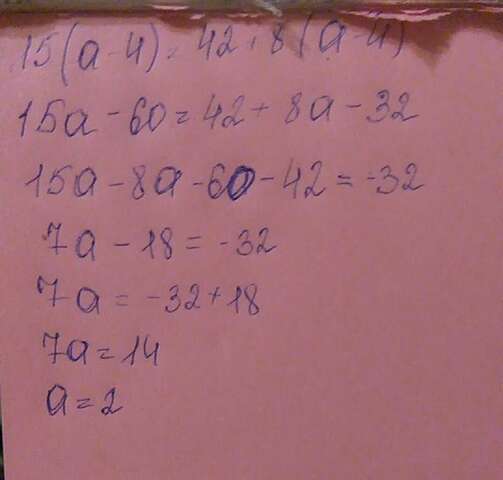 15(a-4) = 42+8(a-4)
15a-60 = 42+8a-32
15a-8a-60-42 = -32
7a-18 = -32
7a = -32+18
7a = 14
a = 2